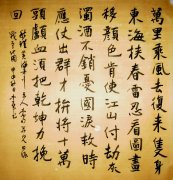 萬里乘風去復來隻身
東海挾春雷忍看圖畫
移顏色肯使江山付劫灰
濁酒不銷憂國淚救時
應仗出群才拚將十萬
頭顱血須把乾坤力挽
回